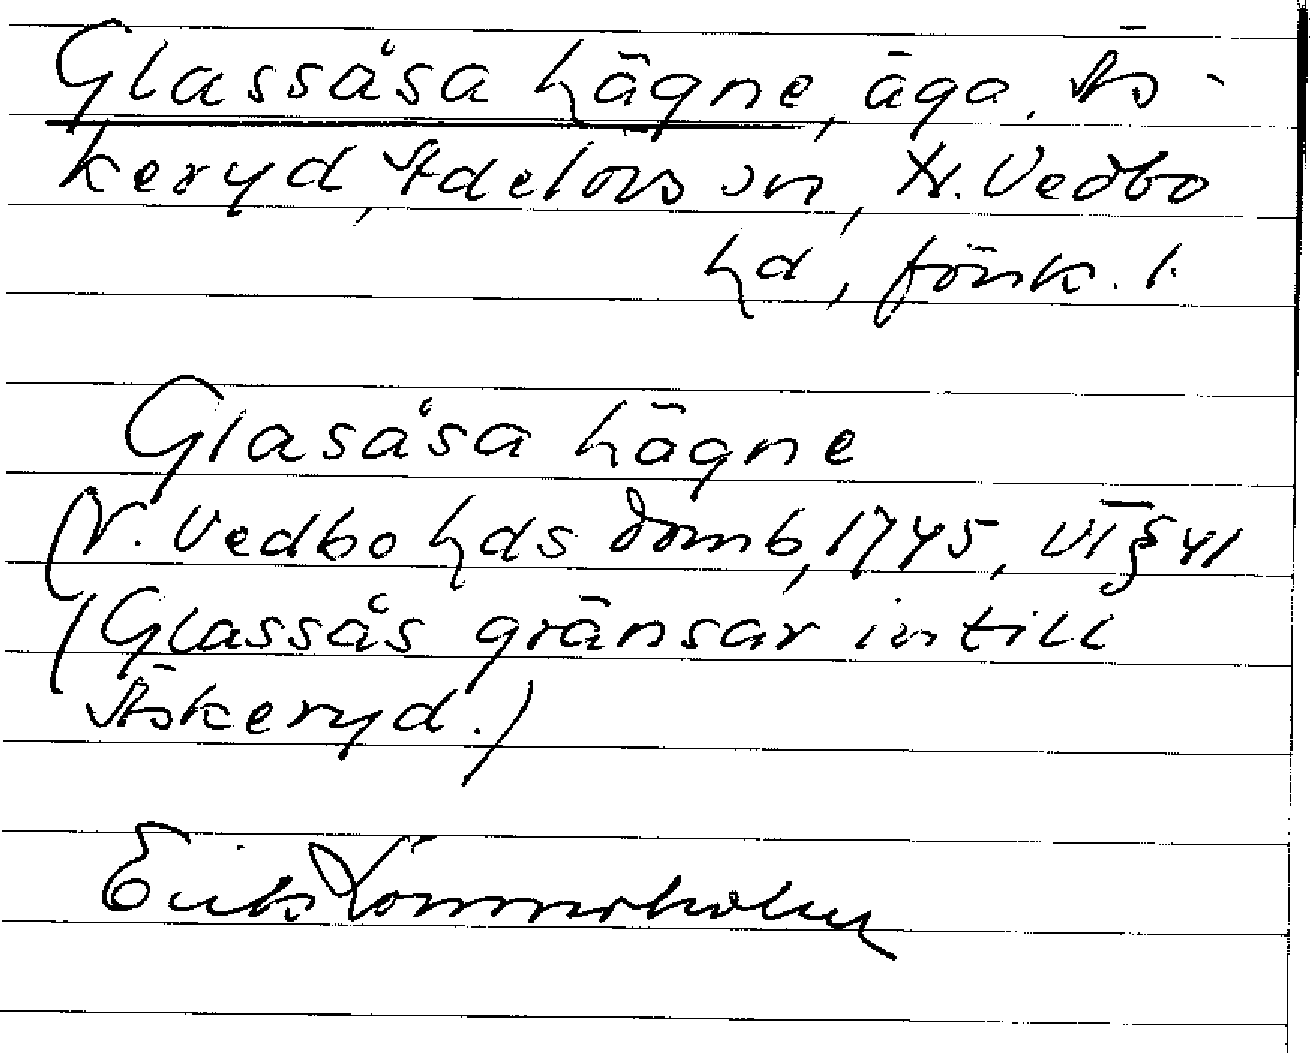 Glassåsa hägne, äga, Äs-
keryd, Adelövs sn, N. Vedbo
hd, Jönk. l.
Glasåsa hägne
(N. Vedbo hds domb, 1745, VI § 41
(Glassås gränsar intill
Äskeryd.)
Erik